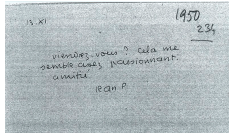 13.XI
1950
234
viendrez-vous ? cela me
semble assez passionnant.
amitié
Jean P.